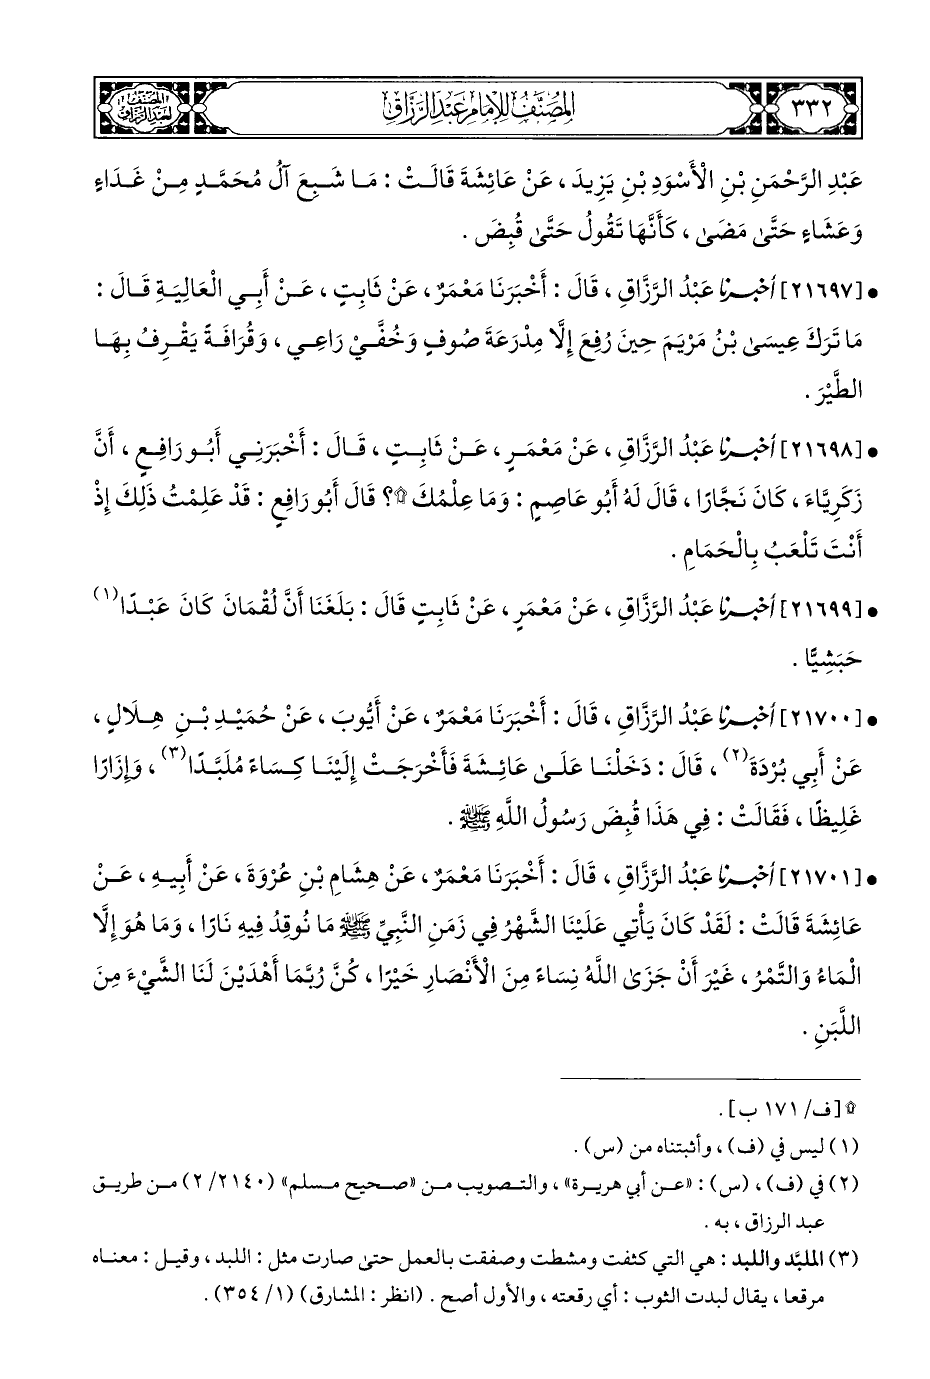 ٣٣٢
المصنف للإمام عبد الرزاق
المصنف لعبد الرزاق
عَبْدِ الرَّحْمَنِ بْنِ الْأَسْوَدِ بْنِ يَزِيدَ ، عَنْ عَائِشَةَ قَالَتْ : مَا شَبِعَ آلُ مُحَمَّدٍ مِنْ غَدَاءٍ
وَعَشَاءٍ حَتَّىٰ مَضَىٰ ، كَأَنَّهَا تَقُولُ حَتَّىٰ قُبِضَ .
• [٢١٦٩٧] أخبرنا عَبْدُ الرَّزَّاقِ ، قَالَ : أَخْبَرَنَا مَعْمَرٌ ، عَنْ ثَابِتٍ ، عَنْ أَبِي الْعَالِيَةِ قَالَ :
مَا تَرَكَ عِيسَىٰ بْنُ مَرْيَمَ حِينَ رُفِعَ إِلَّا مِدْرَعَةَ صُوفٍ وَخُفَّيْ رَاعِي ، وَقُرَافَةً يَقْرِفُ بِهَا
الطَّيْرَ .
• [٢١٦٩٨] أخبرنا عَبْدُ الرَّزَّاقِ ، عَنْ مَعْمَرٍ ، عَنْ ثَابِتٍ ، قَالَ : أَخْبَرَنِي أَبُو رَافِعٍ ، أَنَّ
زَكَرِيَّاءَ ، كَانَ نَجَّارًا ، قَالَ لَهُ أَبُو عَاصِمٍ : وَمَا عِلْمُكَ ۩؟ قَالَ أَبُو رَافِعٍ : قَدْ عَلِمْتُ ذَلِكَ إِذْ
أَنْتَ تَلْعَبُ بِالْحَمَامِ .
• [٢١٦٩٩] أخبرنا عَبْدُ الرَّزَّاقِ ، عَنْ مَعْمَرٍ ، عَنْ ثَابِتٍ قَالَ : بَلَغَنَا أَنَّ لُقْمَانَ كَانَ عَبْدًا(١)
حَبَشِيًّا .
• [٢١٧٠٠] أخبرنا عَبْدُ الرَّزَّاقِ ، قَالَ : أَخْبَرَنَا مَعْمَرٌ ، عَنْ أَيُّوبَ ، عَنْ حُمَيْدِ بْنِ هِلَالٍ ،
عَنْ أَبِي بُرْدَةَ(٢) ، قَالَ : دَخَلْنَا عَلَىٰ عَائِشَةَ فَأَخْرَجَتْ إِلَيْنَا كِسَاءً مُلَبَّدًا(٣) ، وَإِزَارًا
غَلِيظًا ، فَقَالَتْ : فِي هَذَا قُبِضَ رَسُولُ اللَّهِ ﷺ .
• [٢١٧٠١] أخبرنا عَبْدُ الرَّزَّاقِ ، قَالَ : أَخْبَرَنَا مَعْمَرٌ ، عَنْ هِشَامِ بْنِ عُرْوَةَ ، عَنْ أَبِيهِ ، عَنْ
عَائِشَةَ قَالَتْ : لَقَدْ كَانَ يَأْتِي عَلَيْنَا الشَّهْرُ فِي زَمَنِ النَّبِيِّ ﷺ مَا نُوقِدُ فِيهِ نَارًا ، وَمَا هُوَ إِلَّا
الْمَاءُ وَالتَّمْرُ ، غَيْرَ أَنْ جَزَىٰ اللَّهُ نِسَاءً مِنَ الْأَنْصَارِ خَيْرًا ، كُنَّ رُبَّمَا أَهْدَيْنَ لَنَا الشَّيْءَ مِنَ
اللَّبَنِ .
۩ [ف/ ١٧١ ب] .
(١) ليس في (ف) ، وأثبتناه من (س) .
(٢) في (ف) ، (س) : «عن أبي هريرة» ، والتصويب من «صحيح مسلم» (٢١٤٠/ ٢) من طريق
عبد الرزاق ، به .
(٣) الملبَّد واللبد : هي التي كثفت ومشطت وصفقت بالعمل حتىٰ صارت مثل : اللبد ، وقيل : معناه
مرقعا ، يقال لبدت الثوب : أي رقعته ، والأول أصح . (انظر : المشارق) (١/ ٣٥٤) .